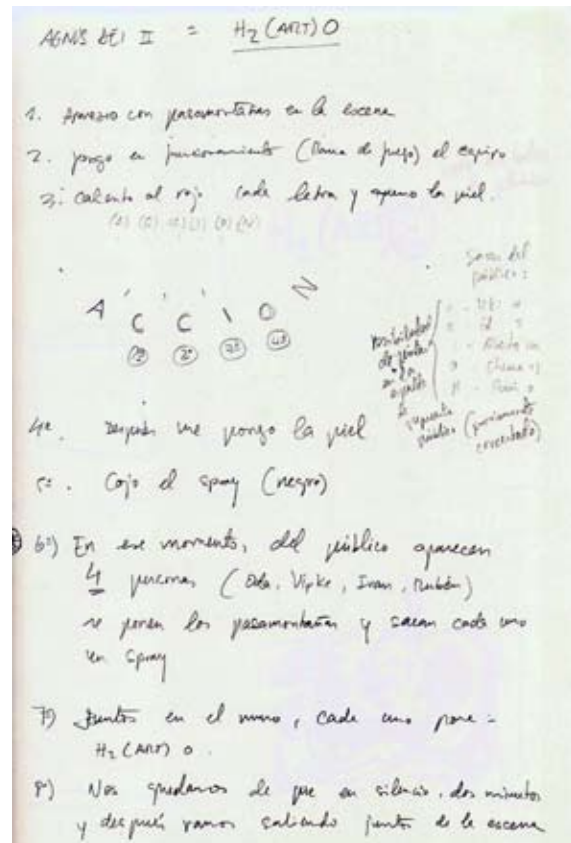 AGNUS DEI II = H2 (ART) O
1. Aparezco con pasamontañas en la escena
2. pongo en funcionamiento (llama de fuego) el equipo
3: calento al rojo cada letra y quemo la piel.
(A) (C) (C) (I) (O) (N)
A C C I O N
1º 2º 3º 4º
Salen del público:
posibilidad de
ayuda
público (previamente concertado)
4º. Después me pongo la piel
5º. Cojo el spray (negro)
6º) En ese momento, del público aparecen
4 personas (Oda, Vipke, Ivan, Rubén)
se ponen los pasamontañas y sacan cada uno
un spray
7) Juntos en el muro, cada uno pone:
H2 (ART) O.
8º) Nos quedamos de pie en silencio, dos minutos
y después vamos saliendo juntos de la escena